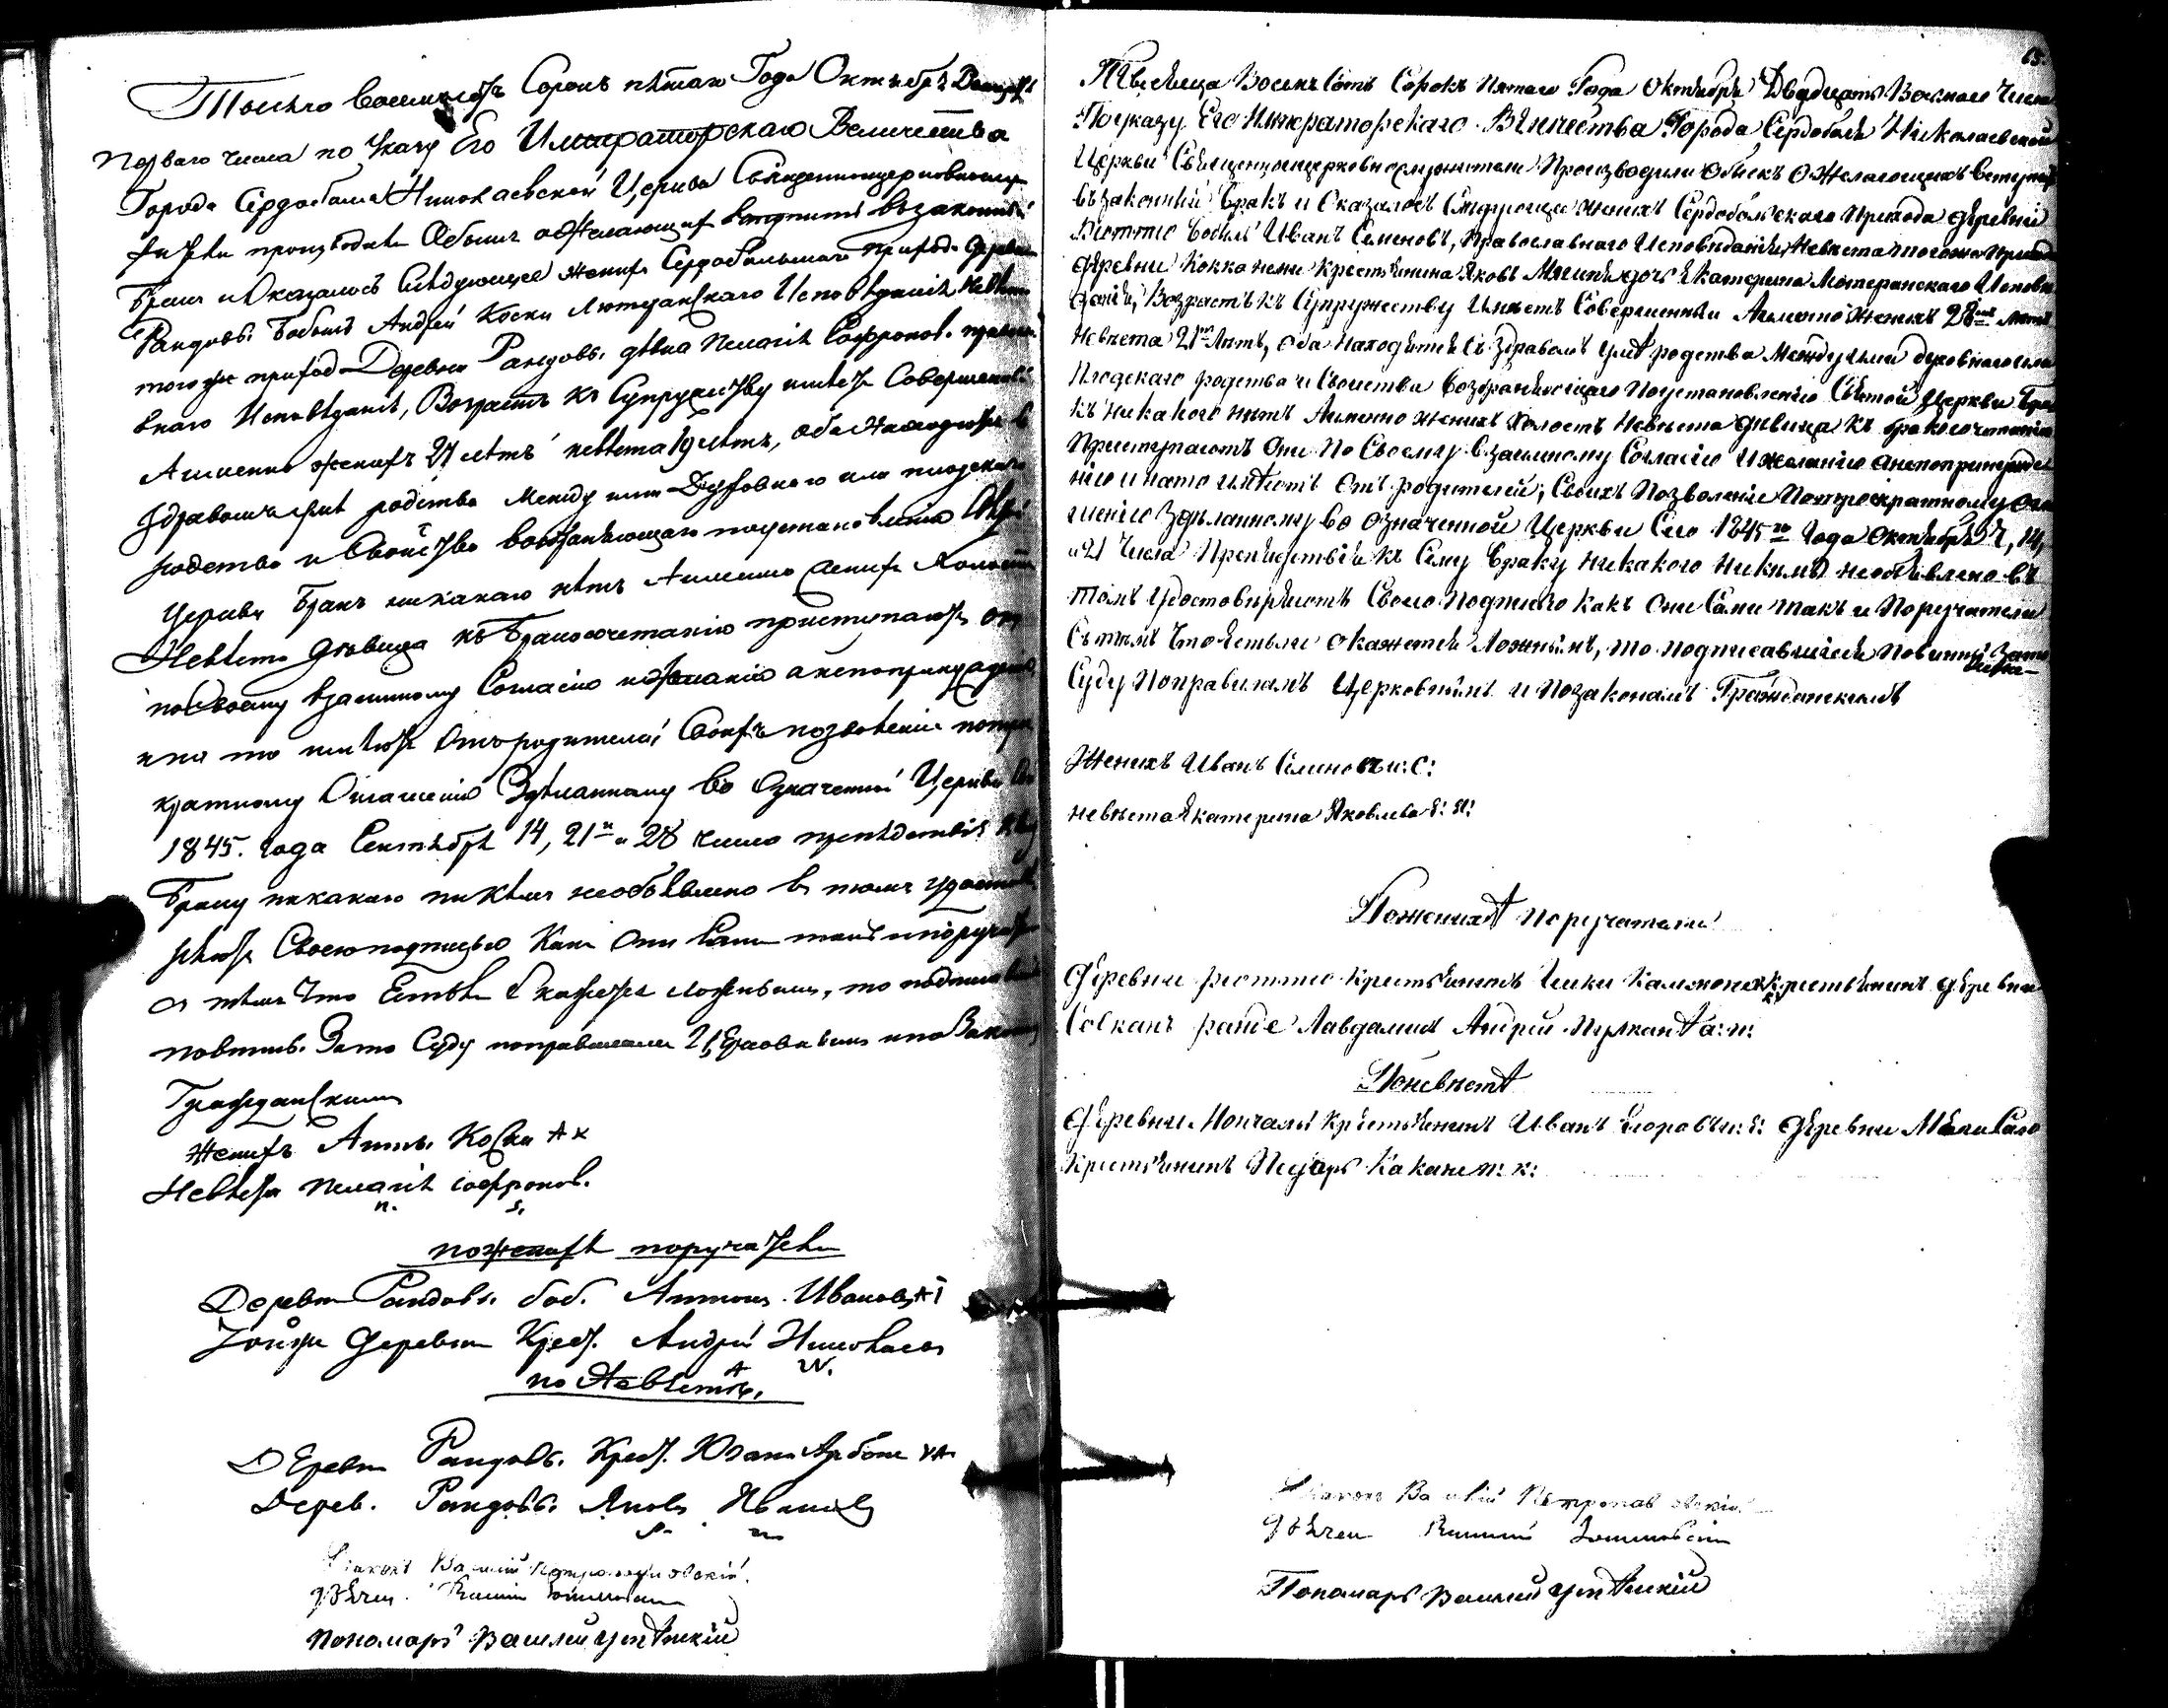 Тысяча восемьсотъ Сорокъ пятаго Года Октября Двадцать
перваго числа по Указу Его Императорскаго Величества
Города Сердоболя Николаевской Церкви Священноцерковнослу
жители производили Обыскъ о желающихъ вступить възаконный
Бракъ и Оказалось Слѣдующее женихъ Сердобольскаго прихода деревни
Рандовь. Бобыль Андрей Коски Лютеранскаго Исповѣданія Невѣста
тогоже прихода Деревни Рандовь. дѣвка Пелагія Софронов. правосла
внаго Исповѣданія, Возрастъ къ Супружеству имѣютъ Совершенный
Аименно женихъ 27 лѣтъ невѣста 19 лѣтъ, оба находятся въ
здравомъ умѣ родства между ими Духовнаго или плодскаго
родства и Свойства возбраняющаго поустановленію Святой
Церкви Бракъ никакаго нѣтъ Аименно женихъ Холостъ
Невѣста дѣвица къ Бракосочетанію приступаютъ они
посвоему взаимному Согласію ижеланію анепопринужденію
ина то имѣютъ Отъродителей Своихъ позволеніе потрое
кратному Оглашенію Здѣланному во Означенной Церкви Сего
1845. года Сентября 14, 21го и 28 число препядствія къ сему
Браку никакаго никѣмъ необъявлено въ томъ удостовѣ
ряютъ Своеюподписью Какъ Они Сами такъ ипоручатели
съ тѣмъ Что Естьли Окажется ложнымъ, то подписавшіеся
повинны. Зато Суду поправиламъ Церковнымъ ипо Законамъ
Гражданскимъ
Женихъ Анть. Коски А К
Невѣста Пелагія Софронов.
п. s.
поженихѣ поручатели
Деревни Рандовь. боб. Антонъ Ивановъ А I
Тойже деревни Крест. Андрей Николаевъ
А N.
по Невѣстѣ.
Деревни Рандовь. Крест. Юганъ
Дерев. Рандовь. Яковъ Ивановъ
Діаконъ Василій Петропавловскій.
Дьячек. Василій
Пономарь Василій Усть
Тысяща Восемь Сотъ Сорокъ Пятаго Года Октября Двадцать Восмаго Числа
Поуказу Его Императорскаго Вѣличества Города Сердоболя Николаевской
Церкви Священноцерковнослужители Производили Обыскъ О Желающихъ Вступить
възаконный Бракъ и Оказалось Слѣдующее женихъ Сердобольскаго Прихода деревни
Рюттю Бобыль Иванъ Семеновъ, Православнаго Исповѣданія, Невѣста тогоже Прихода
деревни Кокконеми Крестьянина Яковъ дочь Екатерина Лютеранскаго Исповѣ
данія, Возрастъ къ Супружеству Имѣетъ Совершенный Аименно женихъ 28ми лѣтъ
Невѣста 21го Лѣтъ, Оба Находятся Въ Здравомъ Умѣ родства Между ими духовнаго или
Плодскаго родства и Своиства Возбраняющаго Поустановленію Святой Церкви Бра
къ Никакого нѣтъ Аименно женихъ Холостъ Невѣста дѣвица къ бракосочетанію
Приступаютъ Они По Своему Взаимному Согласію Ижеланію Анепопринужде
нію инато имѣютъ Отъ родителей, Своихъ Позволеніе Потроекратному Огла
шенію Здѣланному Во Означенной Церкви Сего 1845го Года Октября 7, 14,
и 21 Числа Препядствія къ Сему Браку Никакого Никѣмъ необъявлено въ
томъ Удостовѣряютъ Своею Подписью какъ Они Сами такъ и Поручатели
Сътѣмъ Что Естьли Окажется Ложнымъ, то подписавшіеся Повинны Зато
Суду Поправиламъ Церковнымъ и Позаконамъ Гражданскимъ
Женихъ Иванъ Семеновъ и: С:
невѣста Екатерина Яковлева Е: Я:
Поженихѣ поручатели
деревни рюттю Крестьянинъ Крестьянинъ деревни
Лавдаминъ Андрей а: п:
Поневѣстѣ
деревни Крестьянинъ Иванъ Егоровъ и: Е: деревни
Крестьянинъ Педеръ Каканем п: к:
Діаконъ Василій Петропавловскій
Дьячек Василій
Пономарь Василій Усть